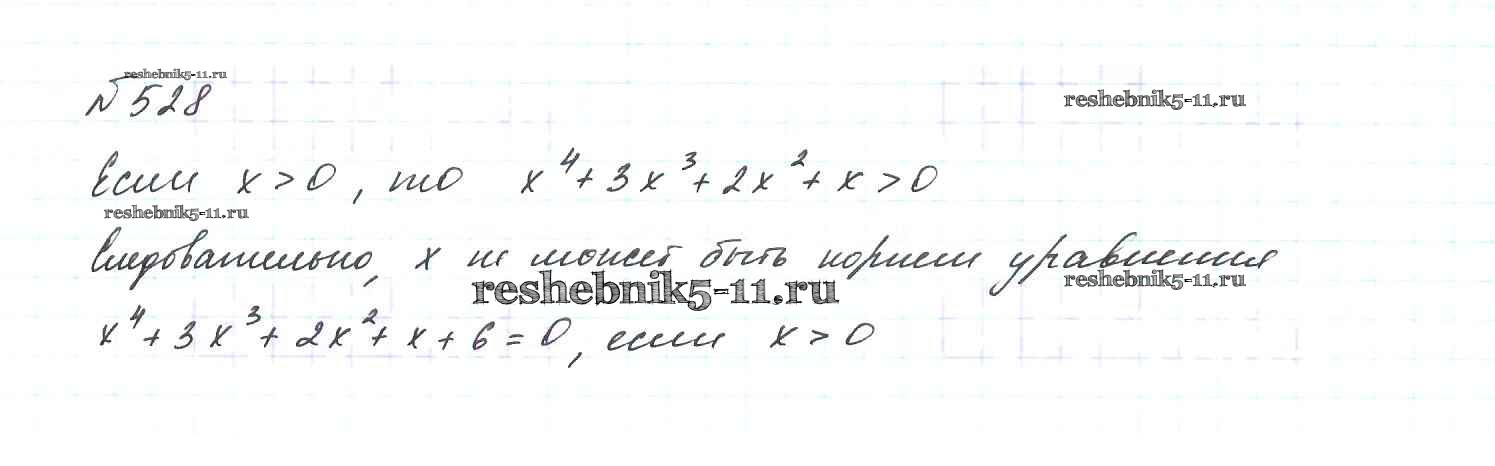 reshebnik5-11.ru
№528
reshebnik5-11.ru
Если x > 0, то x⁴ + 3x³ + 2x² + x > 0
reshebnik5-11.ru
Следовательно, x не может быть корнем уравнения
reshebnik5-11.ru
reshebnik5-11.ru
x⁴ + 3x³ + 2x² + x + 6 = 0, если x > 0